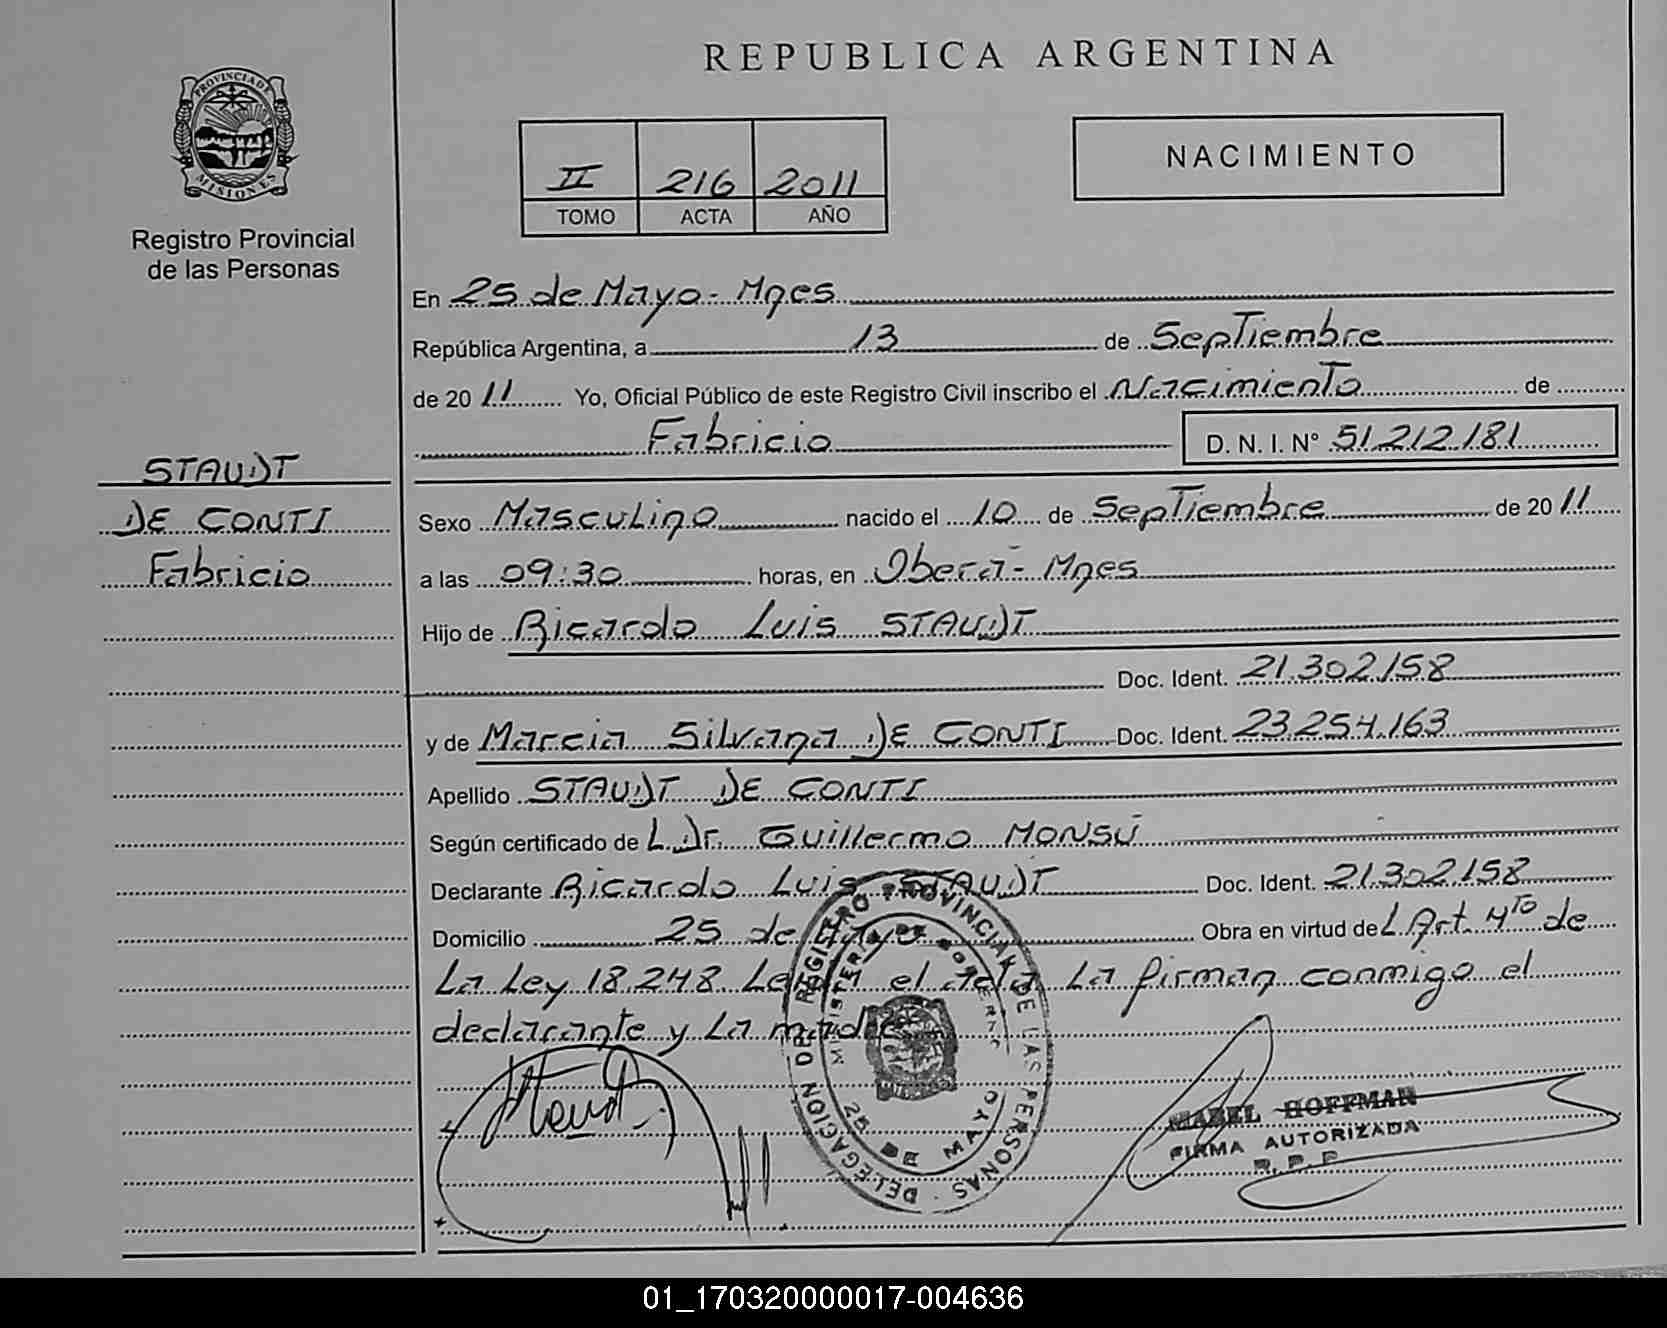 REPUBLICA ARGENTINA
PROVINCIA DE MISIONES
Registro Provincial
de las Personas
II 216 2011
TOMO ACTA AÑO
NACIMIENTO
En 25 de Mayo - Mnes
República Argentina, a 13 de Septiembre
de 2011 Yo, Oficial Público de este Registro Civil inscribo el Nacimiento de
Fabricio D. N. I. N° 51.212.181
STAUDT
DE CONTI
Fabricio
Sexo Masculino nacido el 10 de Septiembre de 2011
a las 09:30 horas, en Oberá - Mnes
Hijo de Ricardo Luis STAUDT
Doc. Ident. 21.302.158
y de Marcia Silvana DE CONTI Doc. Ident. 23.254.163
Apellido STAUDT DE CONTI
Según certificado de L Dr. Guillermo MONSÚ
Declarante Ricardo Luis STAUDT Doc. Ident. 21.302.158
Domicilio 25 de Mayo Obra en virtud de L Art. 4to de
La Ley 18.248. Leída el acta La firman conmigo el
declarante y La madre
DELEGACION DE REGISTRO PROVINCIAL DE LAS PERSONAS
MINISTERIO DE GOBIERNO
25 DE MAYO
MABEL HOFFMAN
FIRMA AUTORIZADA
R. P. P.
01_170320000017-004636